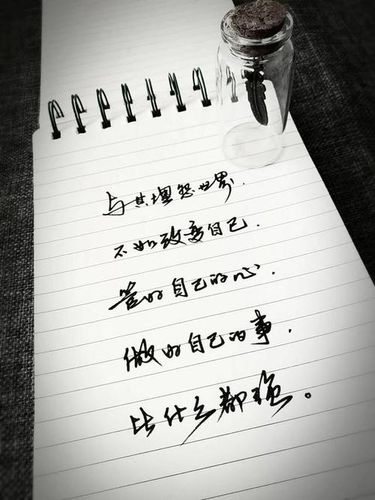 与其埋怨世界，
不如改变自己，
管好自己的心，
做好自己的事，
比什么都强。